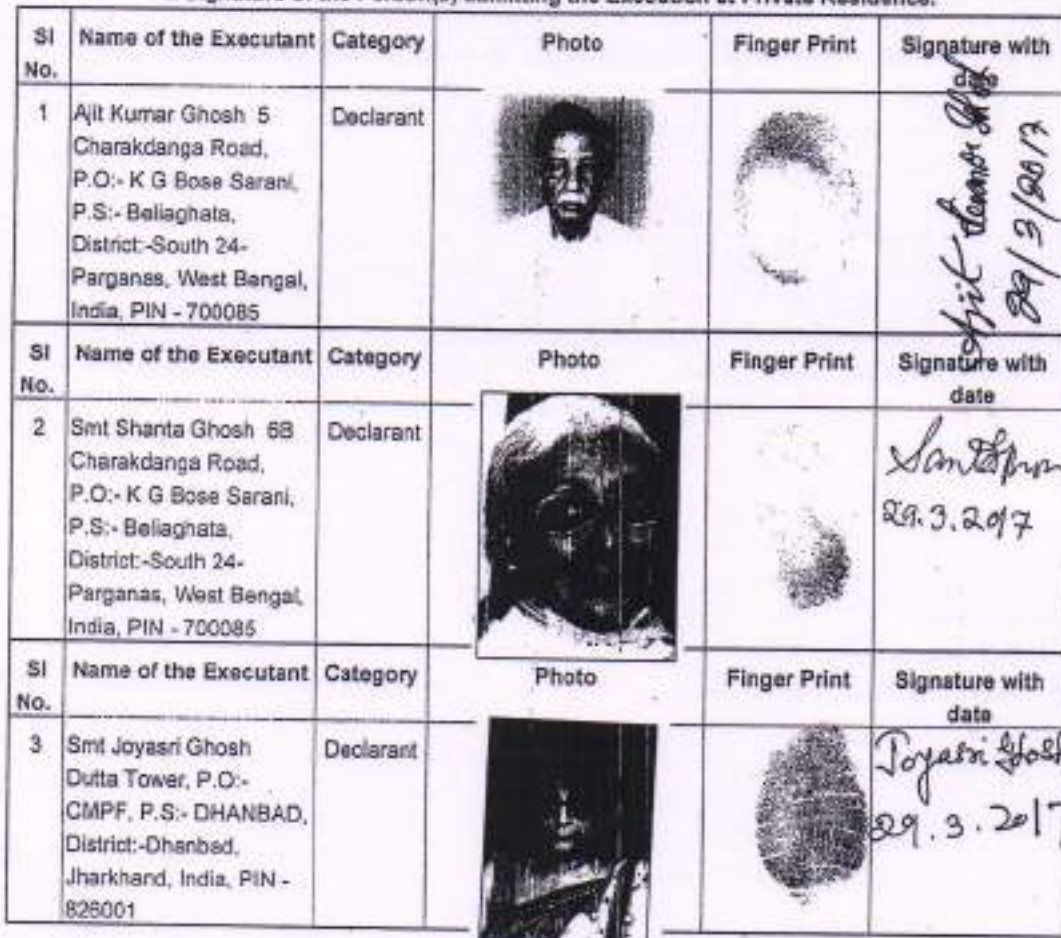 Signature of the Person(s) admitting the Execution at Private Residence.
SI No. Name of the Executant Category Photo Finger Print Signature with date
1 Ajit Kumar Ghosh 5 Declarant
Charakdanga Road,
P.O:- K G Bose Sarani,
P.S:- Beliaghata,
District:-South 24-
Parganas, West Bengal,
India, PIN - 700085
Ajit Kumar Ghosh
29/3/2017
SI No. Name of the Executant Category Photo Finger Print Signature with date
2 Smt Shanta Ghosh 6B Declarant
Charakdanga Road,
P.O:- K G Bose Sarani,
P.S:- Beliaghata,
District:-South 24-
Parganas, West Bengal,
India, PIN - 700085
29.3.2017
SI No. Name of the Executant Category Photo Finger Print Signature with date
3 Smt Joyasri Ghosh Declarant
Dutta Tower, P.O:-
CMPF, P.S:- DHANBAD,
District:-Dhanbad,
Jharkhand, India, PIN -
826001
Joyasri Ghosh
29.3.2017